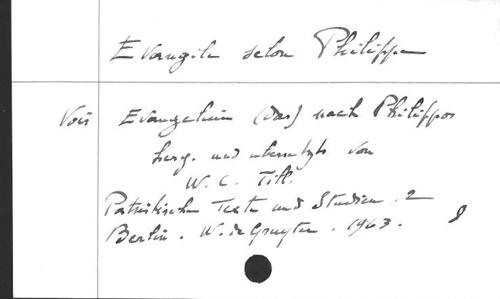 Evangile selon Philippe
Voir Evangelium (das) nach Philippos
herg. und übersetzt von
W. C. Till.
Patristische Texte und Studien. 2
Berlin. W. de Gruyter. 1963.